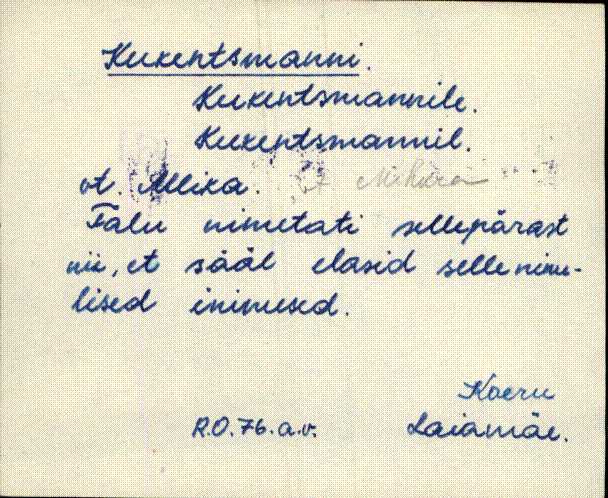 Kukentsmanni.
Kukentsmannile.
Kukentsmannil.
ot. Allika.
Talu nimetati sellepärast
nii, et sääl elasid selle nimu-
lised inimesed.
Koeru
R.O.76.a.v. Laiamäe.